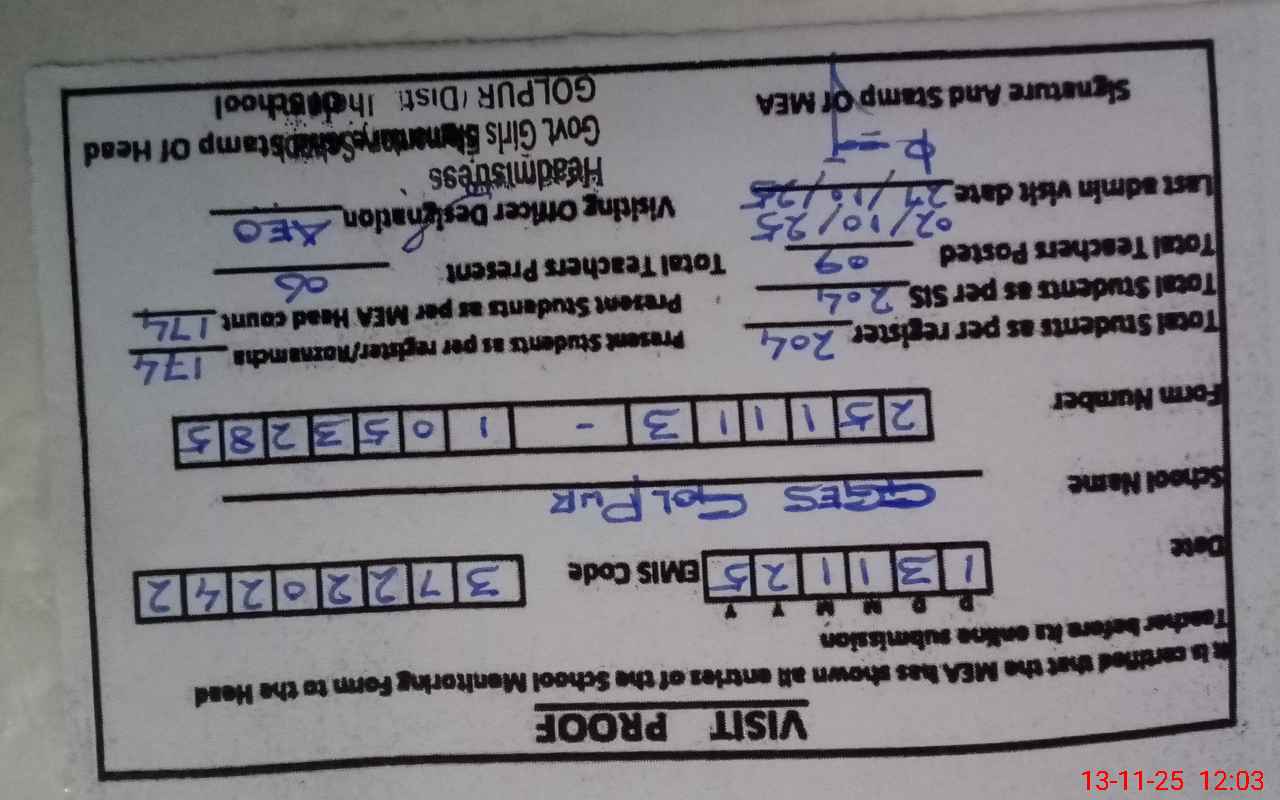 VISIT PROOF
It is certified that the MEA has shown all entries of the School Monitoring Form to the Head
Teacher before its online submission
D D M M Y Y
Date 1 3 1 1 2 5 EMIS Code 3 7 2 2 0 2 4 2
School Name GGES GOLPUR
Form Number 2 5 1 1 1 3 - 1 0 5 3 2 8 5
Total Students as per register 204 Present Students as per register/Roznamcha 174
Total Students as per SIS 204 Present Students as per MEA Head count 174
Total Teachers Posted 09 Total Teachers Present 06
02/10/25
Last admin visit date 27/10/25 Visiting Officer Designation AEO
Headmistress
Govt. Girls Elementary School
GOLPUR (Distt: Jh
Signature And Stamp Of MEA Stamp Of Head
Of School
13-11-25 12:03